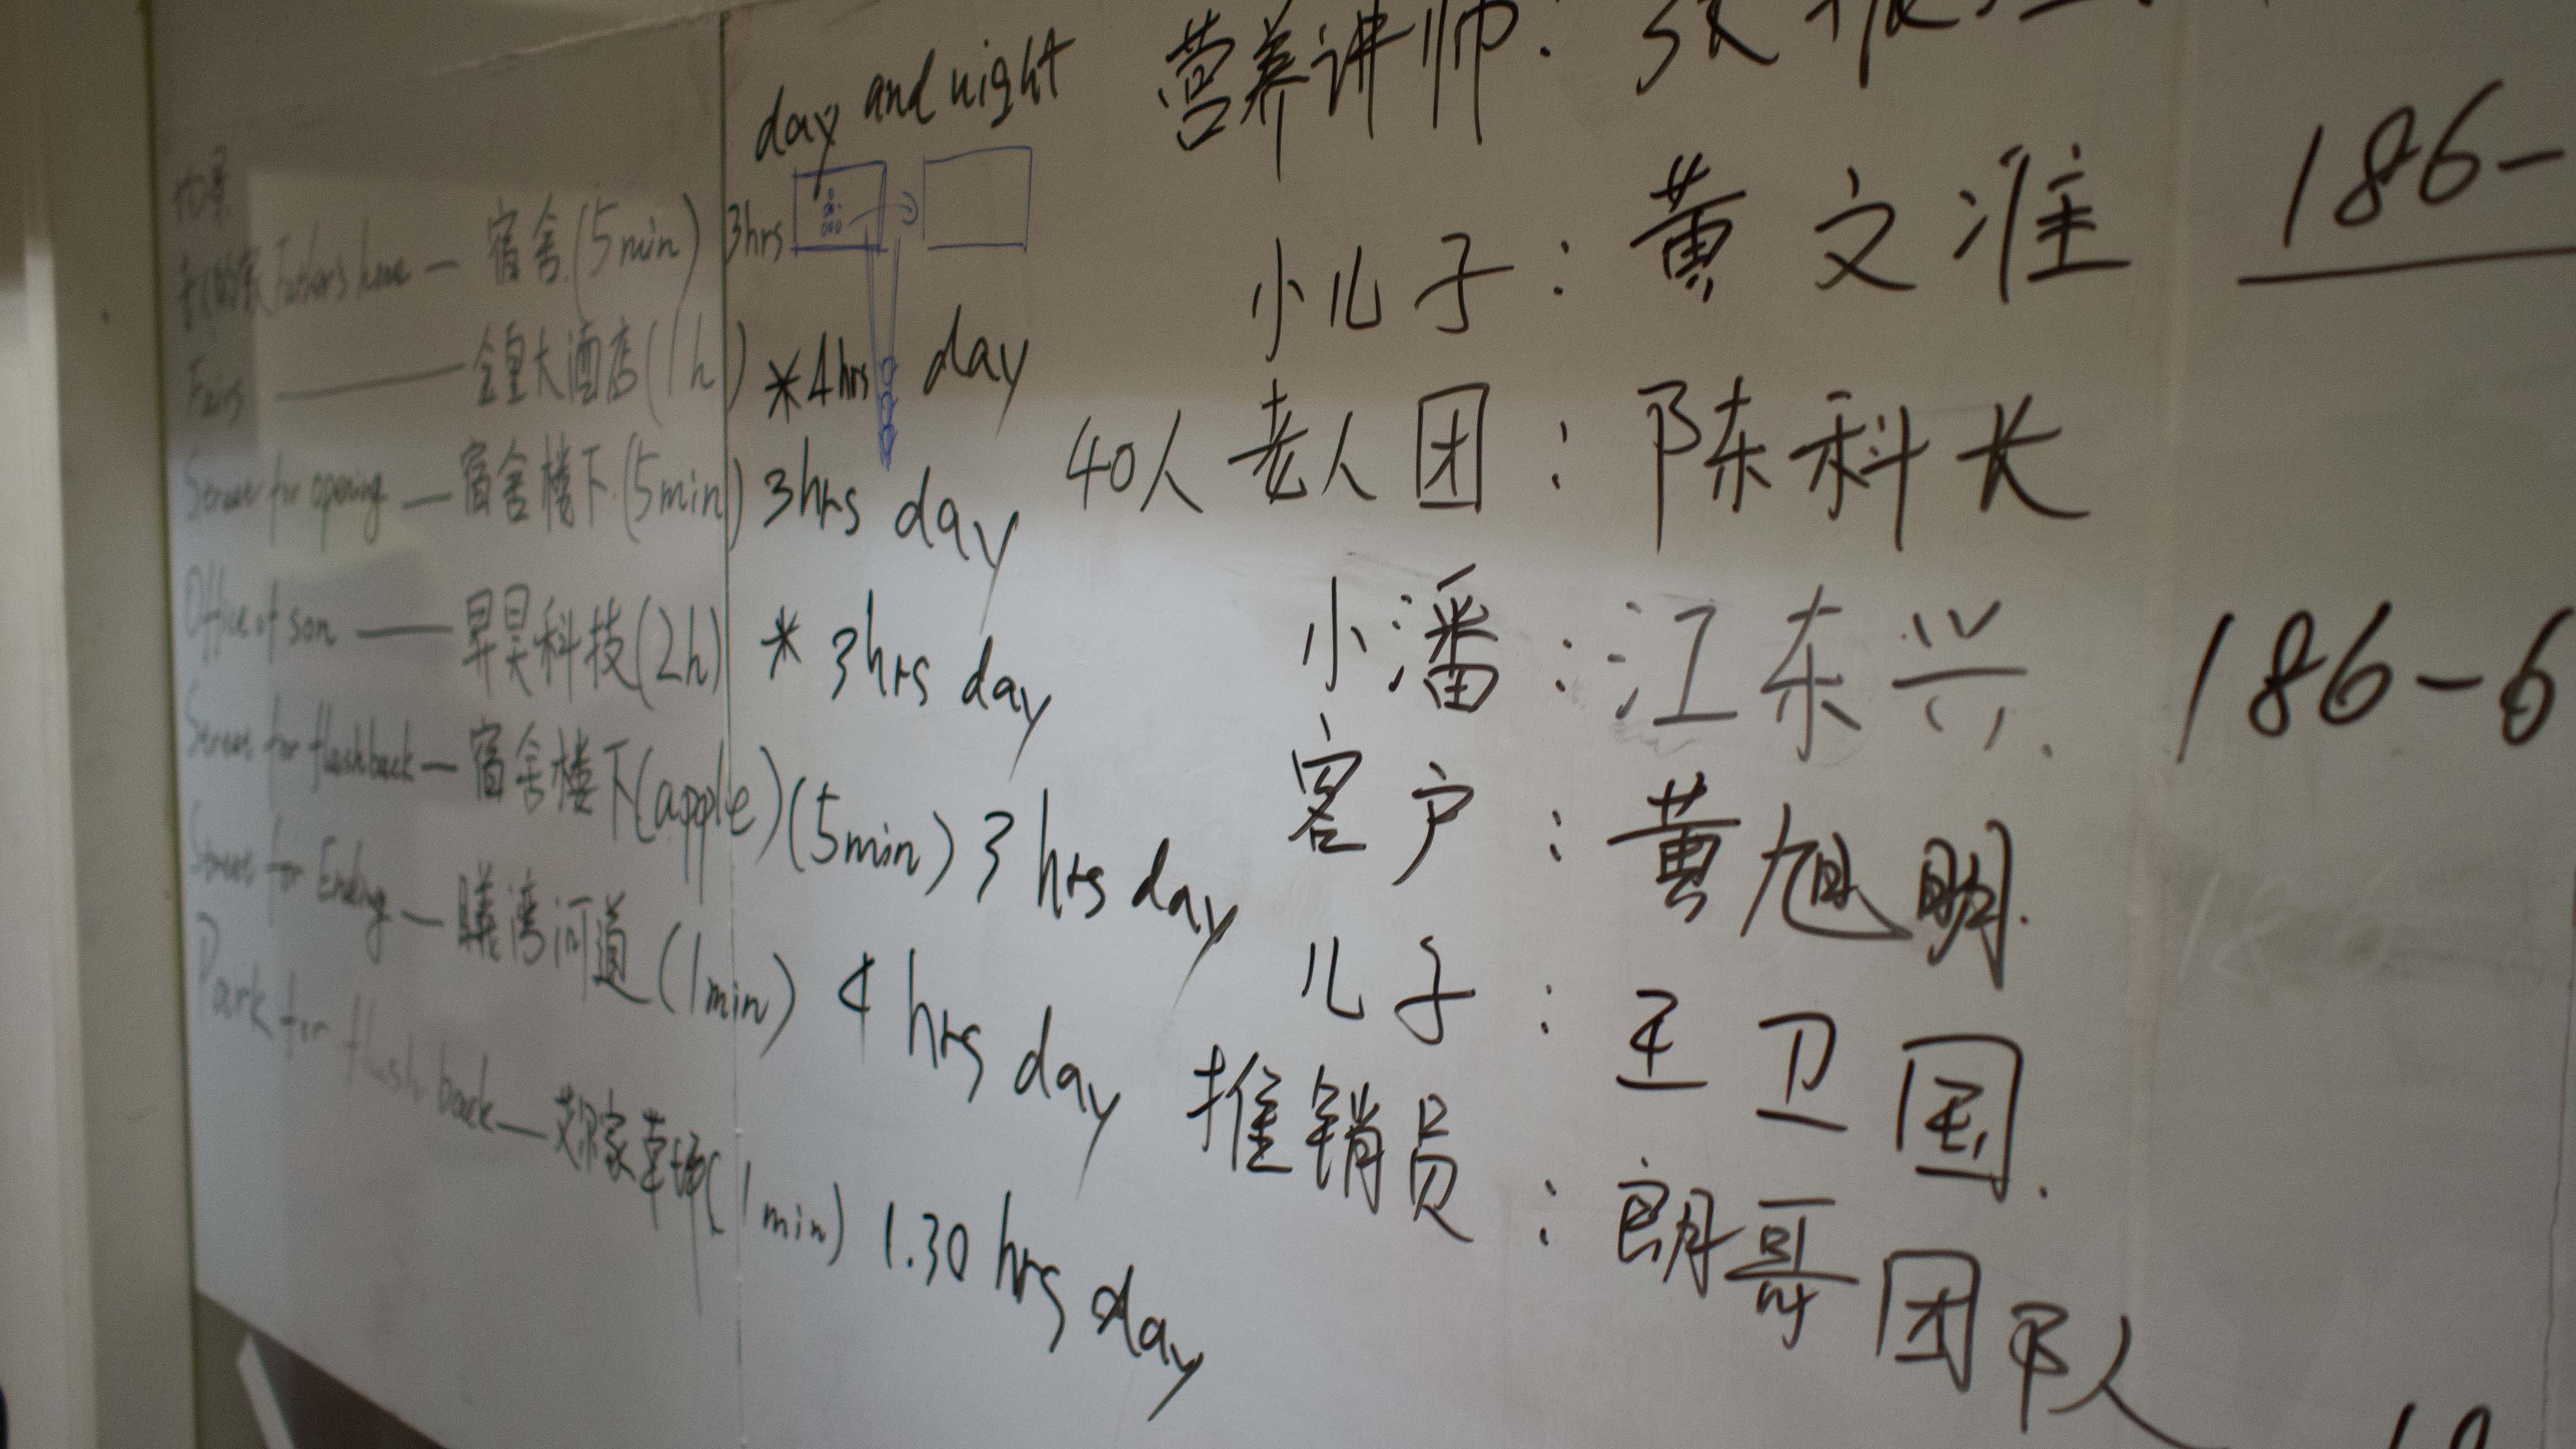 day and night
Father's home — 宿舍 (5min) 3hrs
Fairs — 金皇大酒店 (1h) *4hrs day
Street for opening — 宿舍楼下 (5min) 3hrs day
Office of son — 昇昊科技 (2h) * 3hrs day
Street for flashback — 宿舍楼下 (apple) (5min) 3 hrs day
Street for Ending — 湾河道 (1min) 4 hrs day
Park for flash back — 家草场 (1min) 1.30 hrs day
营养讲师:
小儿子: 黄文准 186-
40人老人团: 陈科长
小潘: 江东兴. 186-6
客户: 黄旭明.
186
儿子: 王卫国.
推销员: 朗哥团队